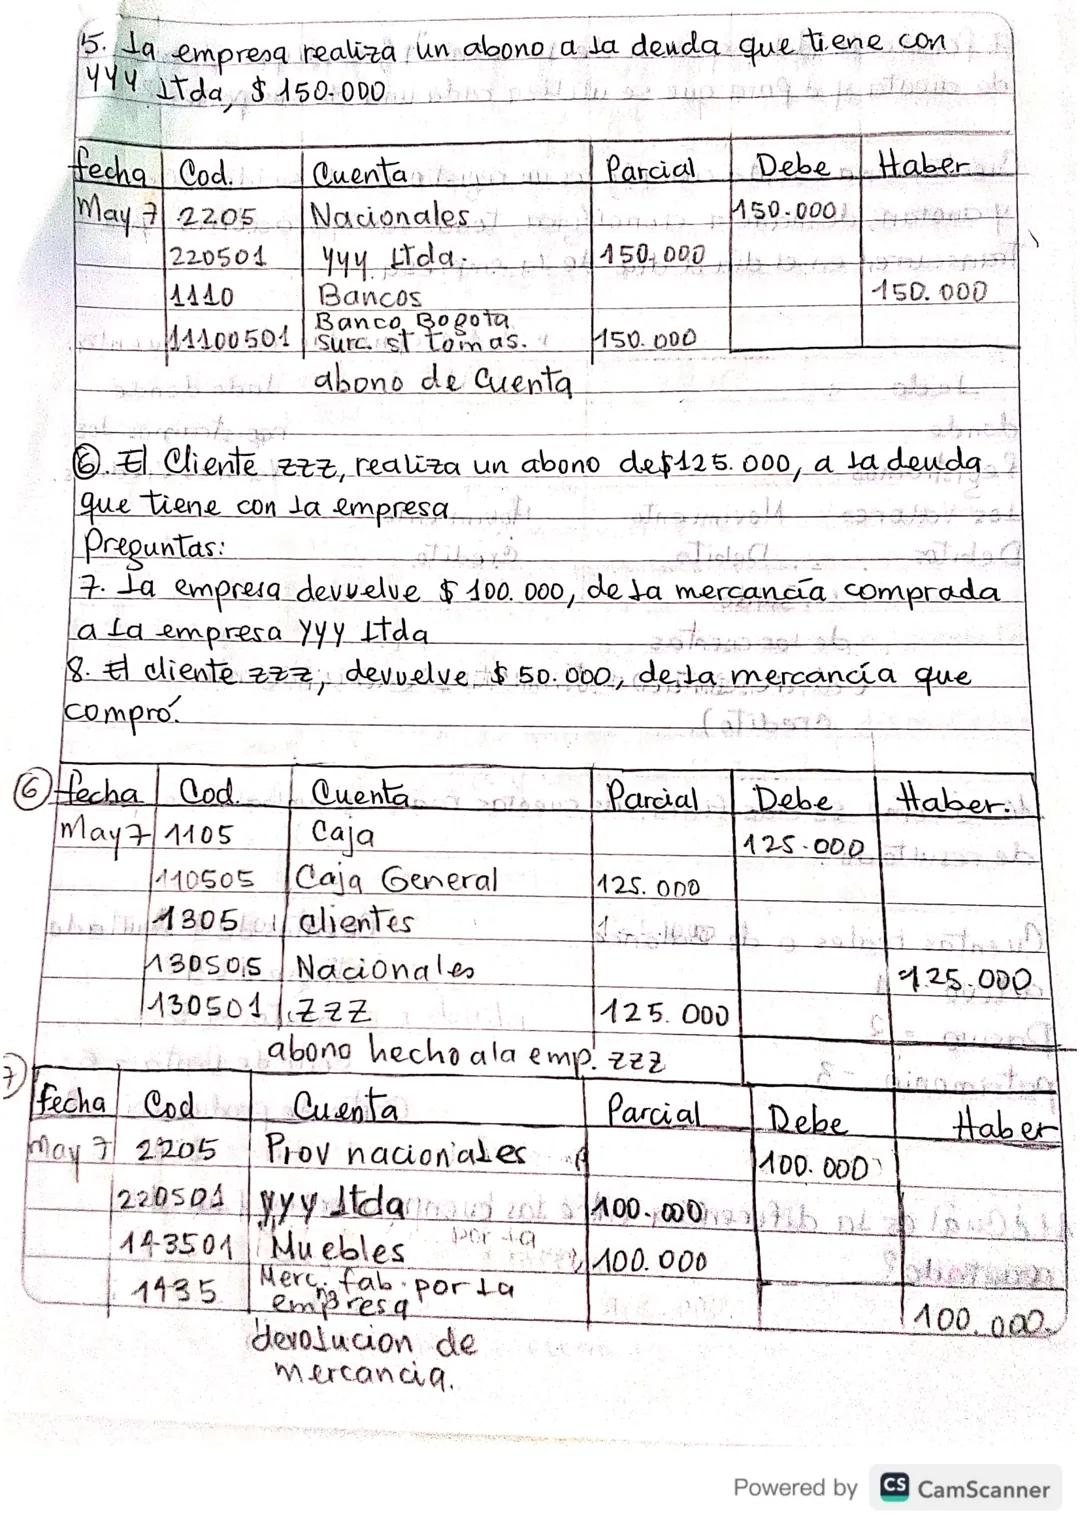 5. La empresa realiza un abono a la deuda que tiene con
yyy Ltda, $ 150.000
fecha Cod. Cuenta Parcial Debe Haber
May 7 2205 Nacionales 150.000
220501 yyy Ltda. 150.000
1110 Bancos 150.000
Banco Bogota
11100501 Surc. st Tomas. 150.000
abono de Cuenta
⑥. El Cliente zzz, realiza un abono de $125.000, a la deuda
que tiene con la empresa
Preguntas:
7. La empresa devuelve $ 100.000, de la mercancía comprada
a la empresa yyy Ltda
8. El cliente zzz, devuelve $ 50.000, de la mercancía que
compró.
⑥ fecha Cod. Cuenta Parcial Debe Haber.
May 7 1105 Caja 125.000
110505 Caja General 125.000
1305 clientes
130505 Nacionales 125.000
130501 ZZZ 125.000
abono hecho a la emp. zzz
7) fecha Cod Cuenta Parcial Debe Haber
May 7 2205 Prov nacionales 100.000
220501 yyy Ltda 100.000
143501 Muebles por la 100.000
1435 Merc. fab. por la
empresa 100.000
devolucion de
mercancia.
Powered by CS CamScanner